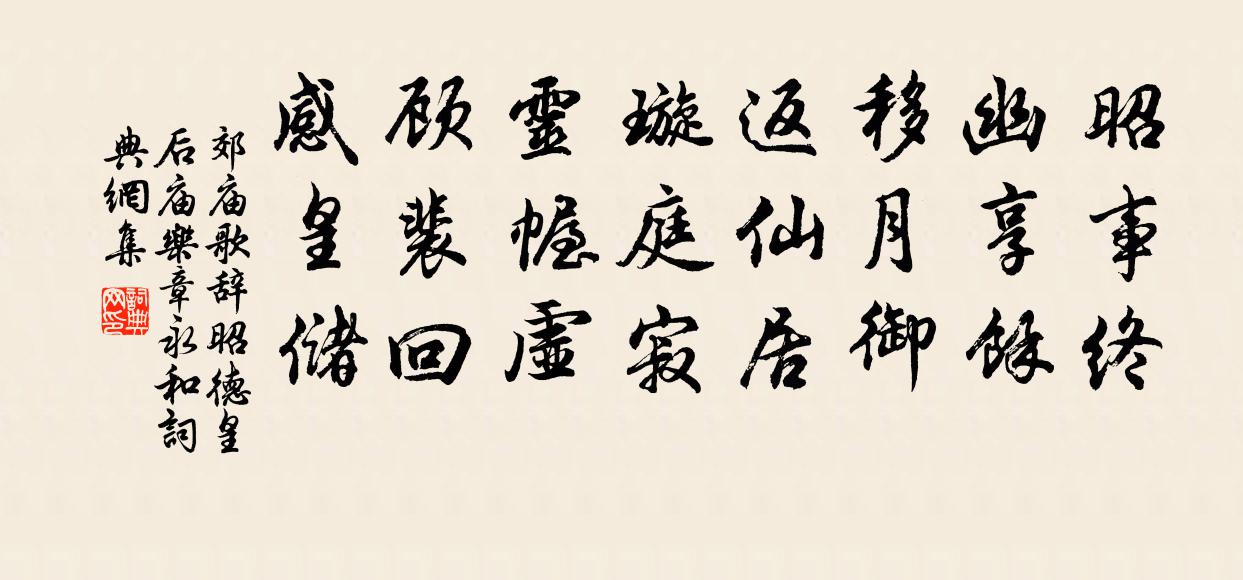 昭事终
幽享餘
移月御
返仙居
璇庭寂
靈幄虛
顾裴回
感皇儲
郊庙歌辞昭德皇
后庙樂章永和詞
典網集
詞典
网印